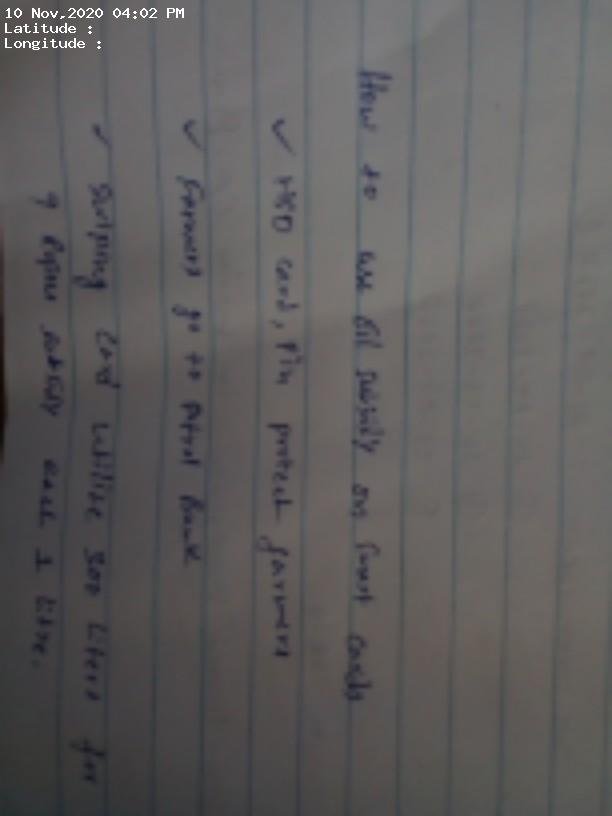 10 Nov,2020 04:02 PM
Latitude :
Longitude :
How to use Oil subsidy on smart cards
✓ HSD card, Pin protect farmers
✓ Farmers go to Petrol Bunk
✓ Swiping Card utilize 500 liters for
9 Rupees subsidy each 1 litre.